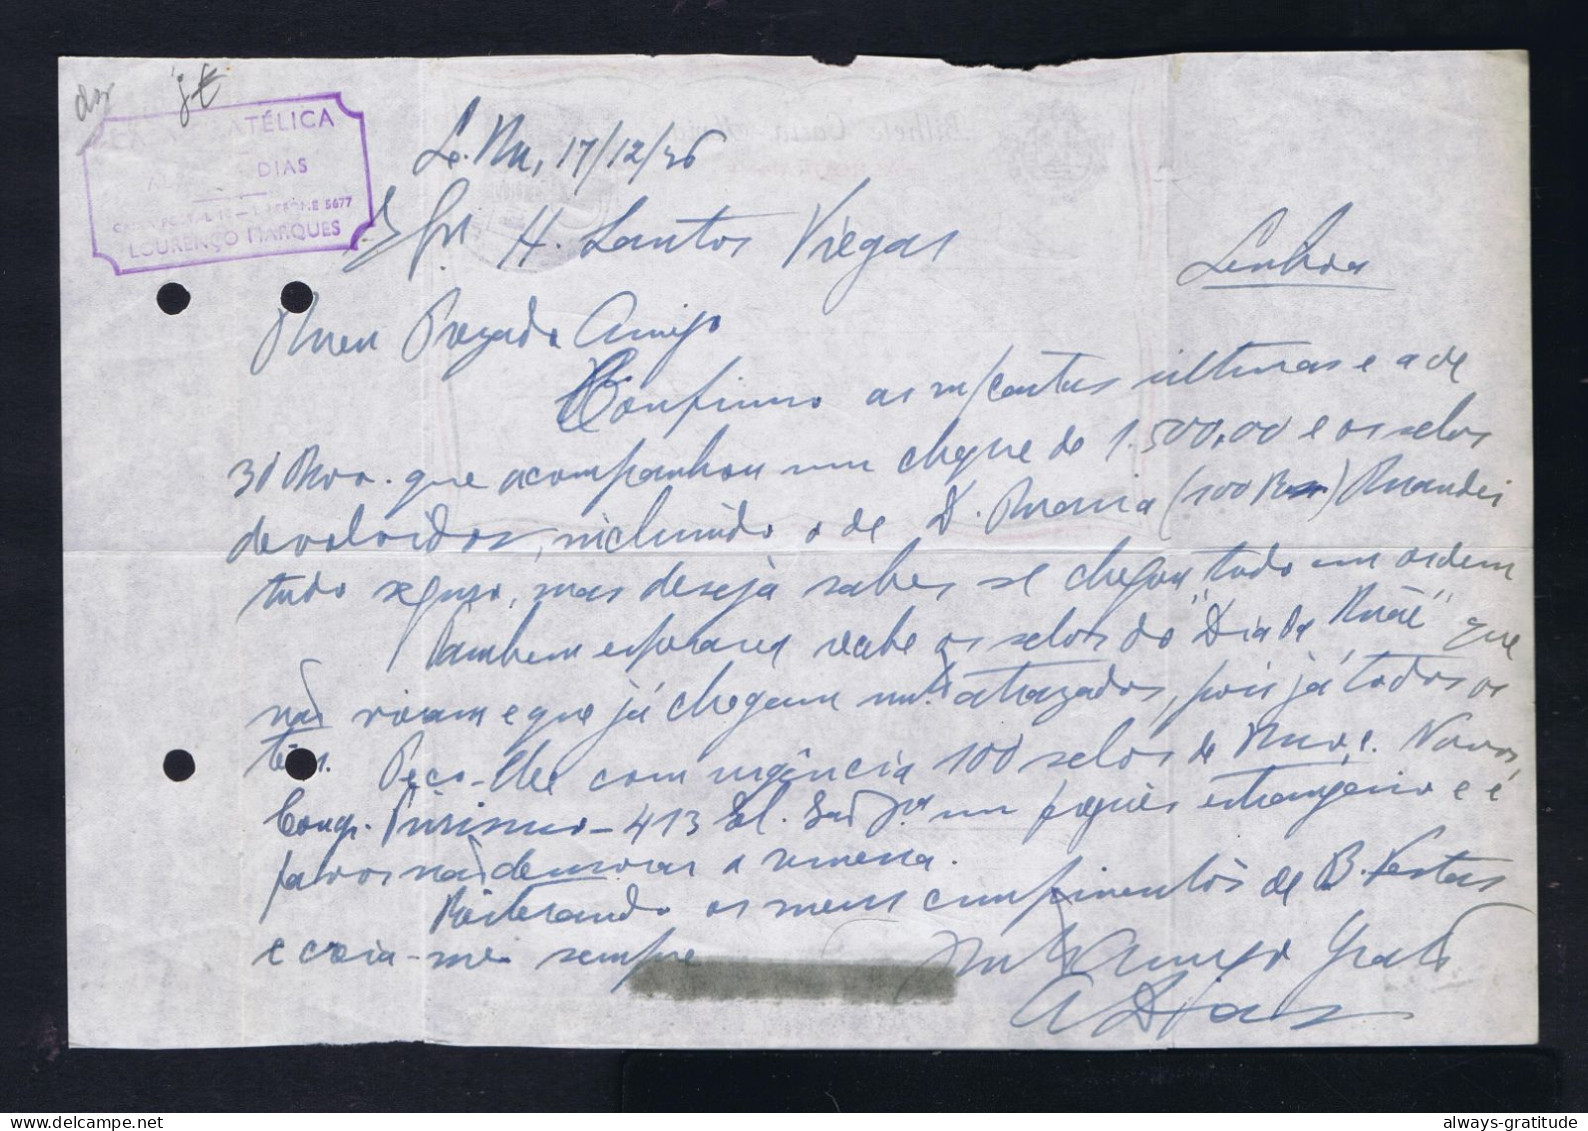 FILATÉLICA
DIAS
CAIXA POSTAL — TELEFONE 5677
LOURENÇO MARQUES
L. Mq, 17/12/56
Sr. H. Santos Viegas
Lisboa
Meu Prezado Amigo
Confirmo as m/cartas ultimas e a de
30 Nov. que acompanhou um cheque de 1.500,00 e os selos
devolvidos, incluindo o de D. Maria (100 Reis) Mandei
tudo seguro, mas deseja saber se chegou tudo em ordem
Tambem esperava recebe os selos do "Dia da Mãe" que
não vieram e que já chegam mt.º atrazados, pois já todos os
têm. Peço-lhe com urgência 100 selos de Moç. Novos,
Congr. Turismo - 413 El. São p.ª um freguês estrangeiro e é
favor não demorar a remessa.
Reiterando os meus cumprimentos de B. Festas
e creia-me sempre
Mtº Amigo Grato
A Dias
always-gratitude